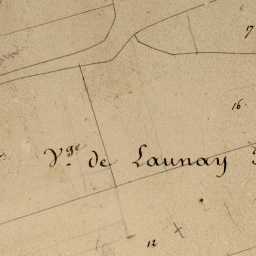 16
Vge de Launay
12